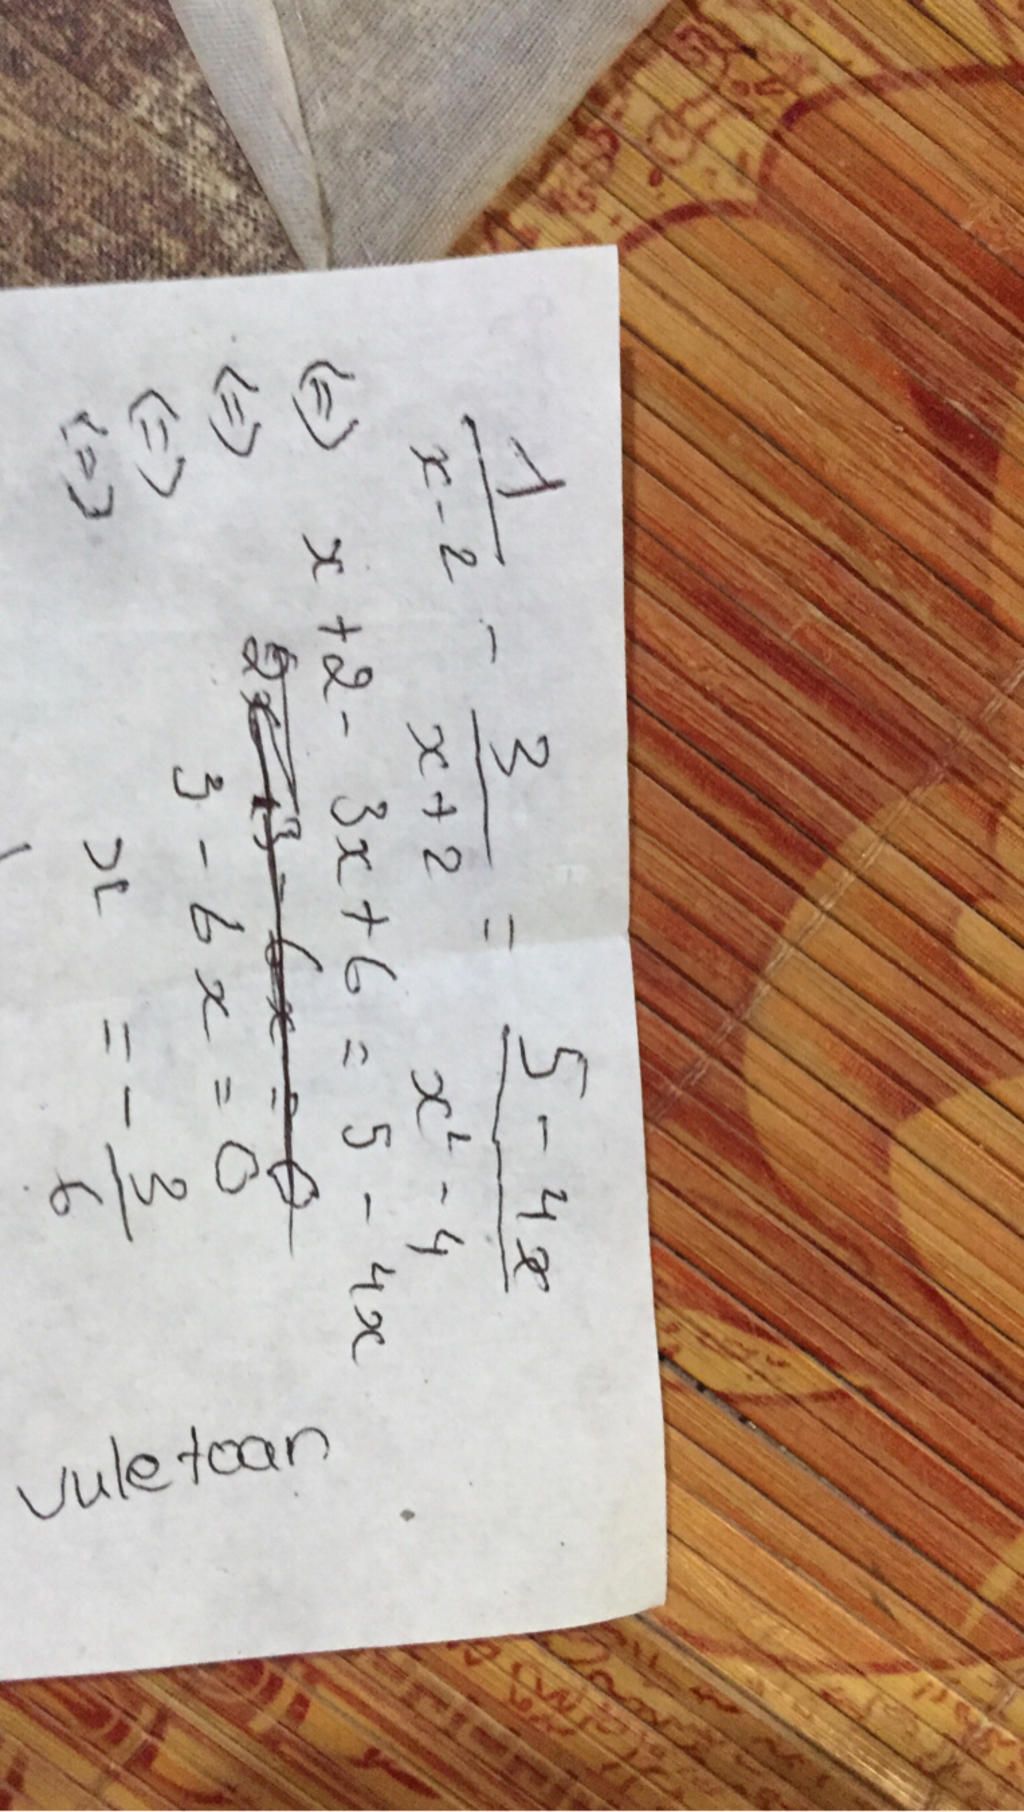 1/(x-2) - 3/(x+2) = (5-4x)/(x²-4)
(=) x+2- 3x+6 = 5 - 4x
(=) 3 - 6x = 0
(=) x = - 3/6
(=)
vuletoan